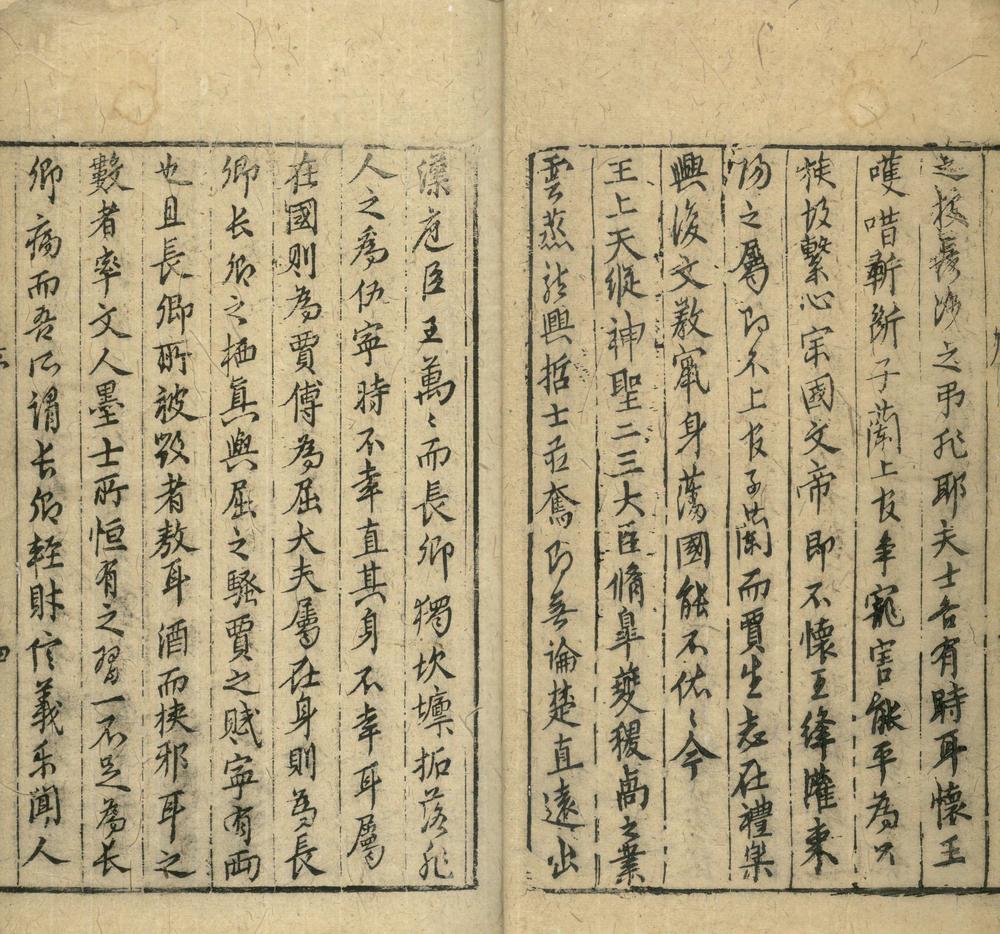 之弔非耶夫士各有時耳懷王
嘆唶斬斷子蘭上官幸寵害能平為只
族故繫心宗國文帝即不懷王絳灌東
陽之屬即不上官子蘭而賈生志在禮樂
興後文教寘身藩國能不佗〻今
王上天縱神聖二三大臣脩皐夔稷卨之業
雲蒸龍興哲士並奮即無論楚直遠出
漢庭臣王萬〻而長卿獨坎壈拓落非
人之為伤寧時不幸直其身不幸耳屬
在國則為賈傅為屈大夫屬在身則為長
卿長卿之栖真與屈之騷賈之賦寧有兩
也且長卿所被毀者敖耳酒而挾邪耳之
數者率文人墨士所恒有之習一不足為長
卿病而吾所謂長卿輕財信義樂聞人
四